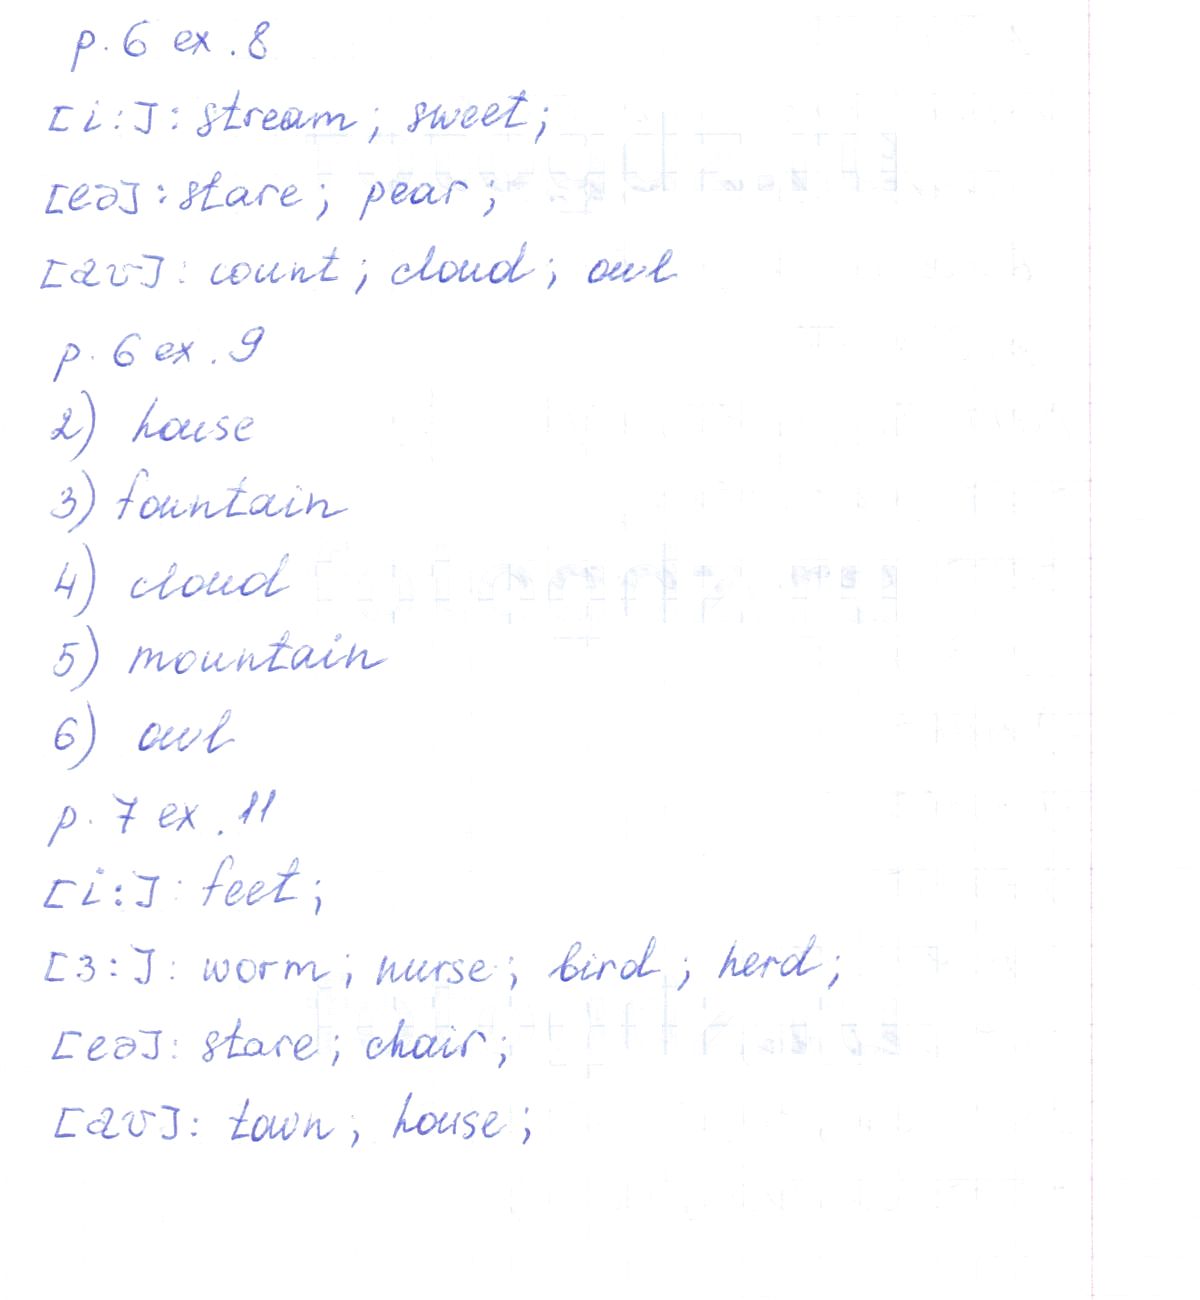 p. 6 ex. 8
[i:]: stream; sweet;
[eə]: stare; pear;
[aʊ]: count; cloud; owl
p. 6 ex. 9
2) house
3) fountain
4) cloud
5) mountain
6) owl
p. 7 ex. 11
[i:]: feet;
[3:]: worm; nurse; bird; herd;
[eə]: stare; chair;
[aʊ]: town; house;